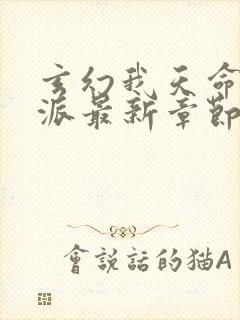 玄幻我天命
派最新章節
會說話的猫A